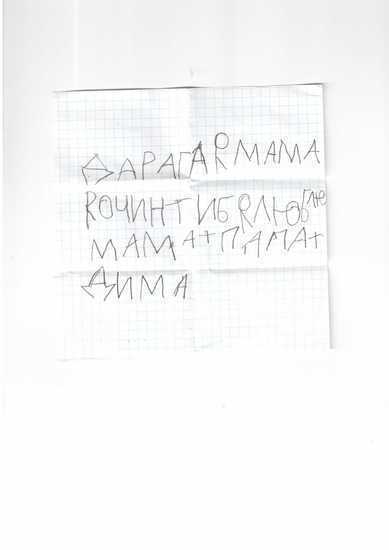 ДАРАГАЯ МАМА
Я ОЧИН ТИБЯ ЛЮБЛЮ
МАМА+ПАПА+
ДИМА